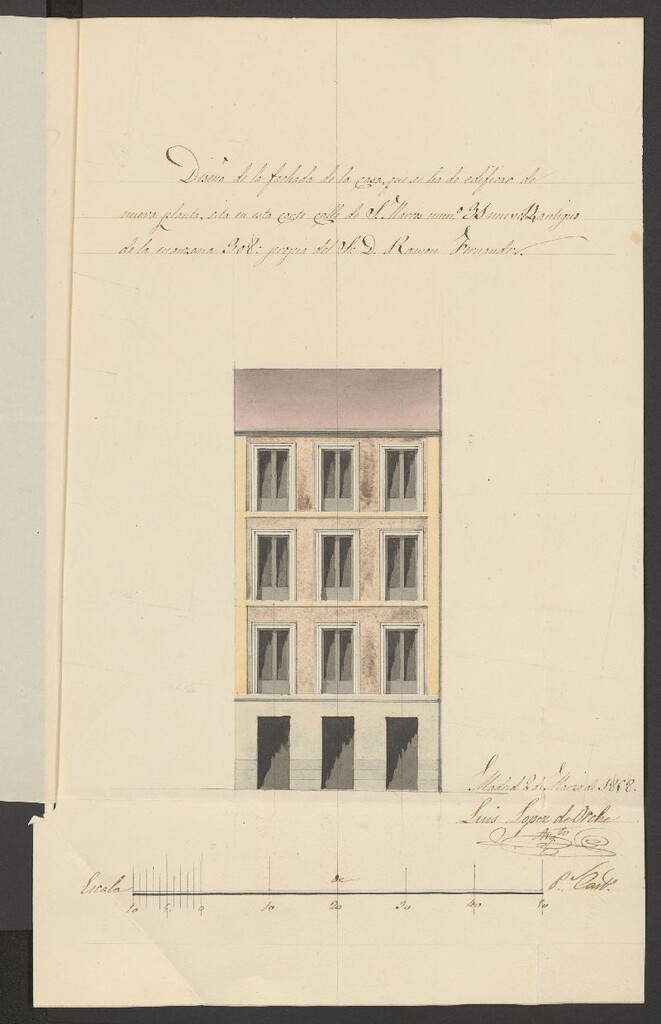 Diseño de la fachada de la casa, que se ha de edificar de
nueva planta, sita en esta corte calle de S. Marcos num.º 35 nuevo antiguo
de la manzana 308: propia del Sr. D. Ramon Fernandez.
Madrid 2 de Marzo de 1858.
Luis Lopez de Orche
Arq.to
Escala de P.s Cast.s
10 5 0 10 20 30 40 50